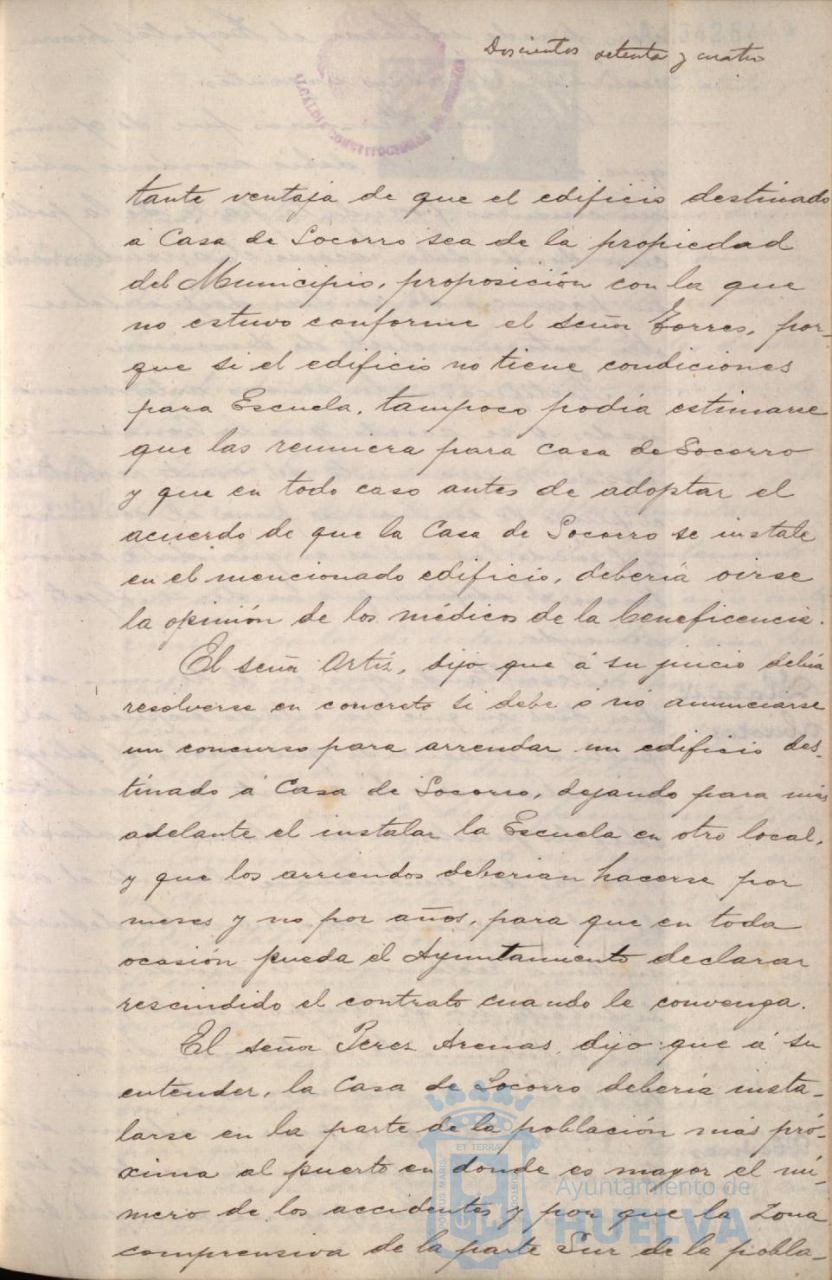 Doscientos setenta y cuatro
ALCALDIA CONSTITUCIONAL DE
tante ventaja de que el edificio destinado
á Casa de Socorro sea de la propiedad
del Municipio, proposición con la que
no estuvo conforme el señor Torres, por-
que si el edificio no tiene condiciones
para Escuela, tampoco podía estimarse
que las reuniera para casa de Socorro
y que en todo caso antes de adoptar el
acuerdo de que la Casa de Socorro se instale
en el mencionado edificio, debería oirse
la opinión de los médicos de la beneficencia.
El señor Ortiz, dijo que á su juicio debía
resolverse en concreto si debe ó nó anunciarse
un concurso para arrendar un edificio des-
tinado á Casa de Socorro, dejando para más
adelante el instalar la Escuela en otro local,
y que los arriendos deberian hacerse por
meses y no por años, para que en toda
ocasión pueda el Ayuntamiento declarar
rescindido el contrato cuando le convenga.
El señor Perez Arenas, dijo: que á su
entender, la Casa de Socorro debería insta-
larse en la parte de la población más pró-
xima al puerto en donde es mayor el nú-
mero de los accidentes y por que la Zona
comprensiva de la parte Sur de la pobla-
PORTUS MARIS ET TERRAE CUSTODIA
Ayuntamiento de
HUELVA